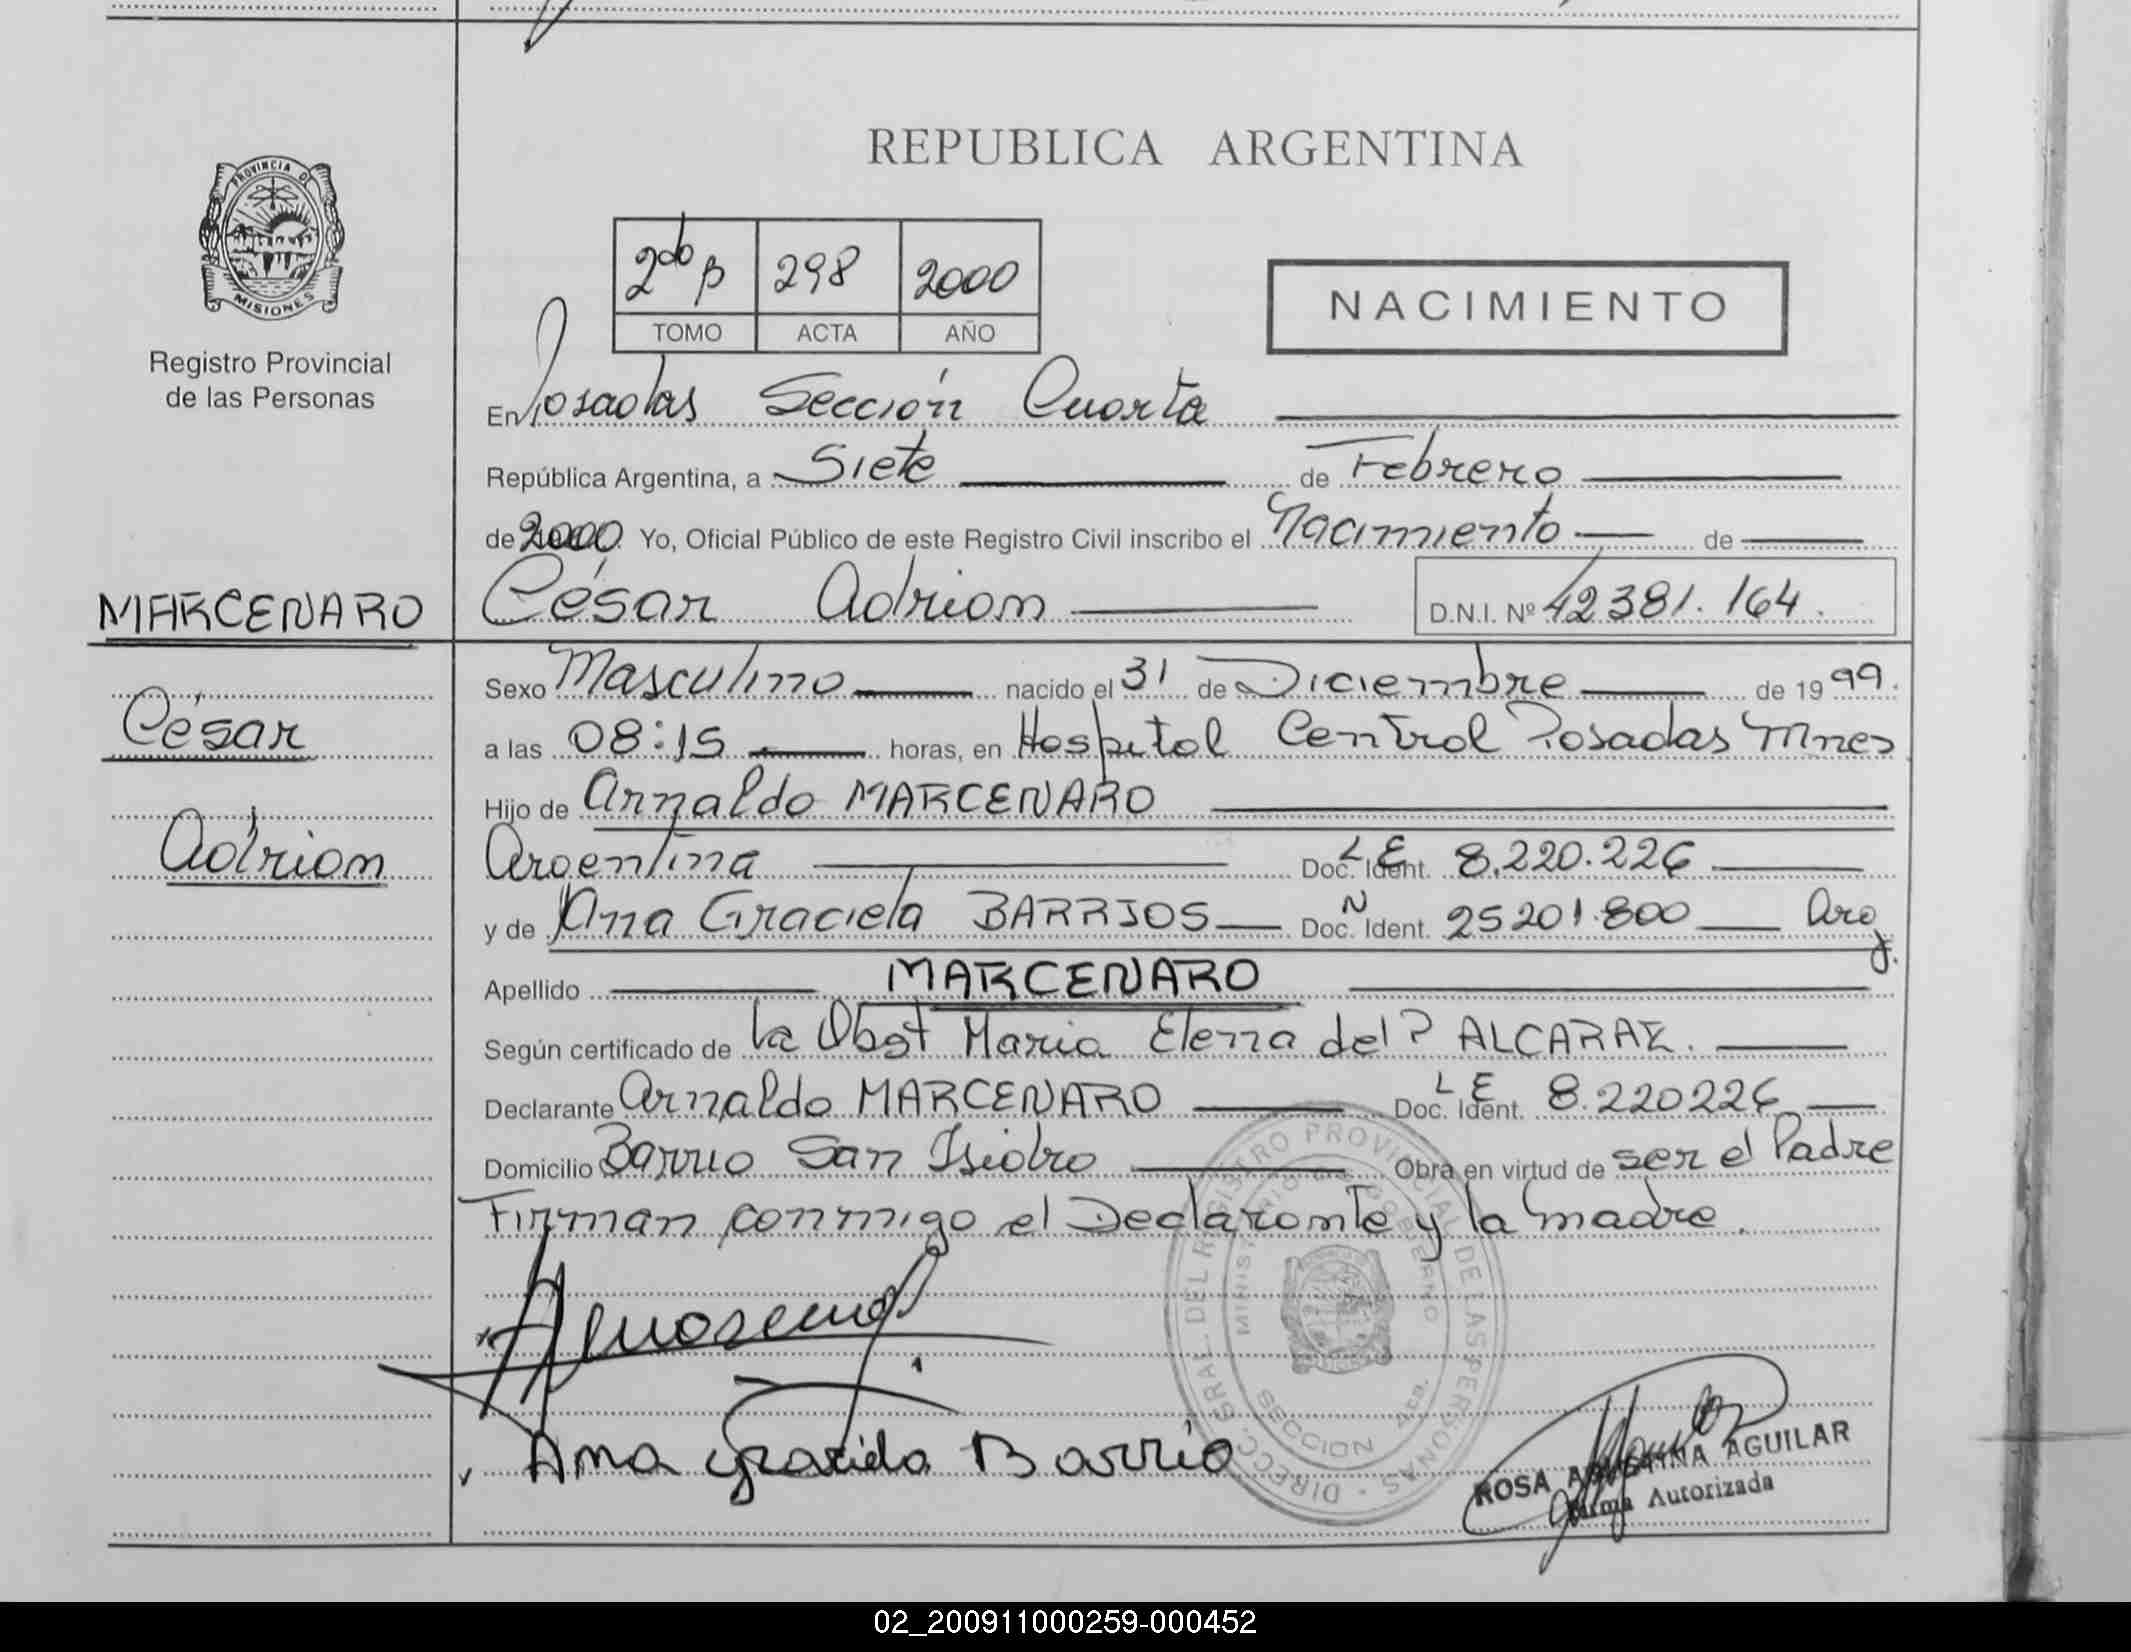 REPUBLICA ARGENTINA
PROVINCIA DE
MISIONES
Registro Provincial
de las Personas
2do p 298 2000
TOMO ACTA AÑO
NACIMIENTO
En Posadas Sección Cuarta
República Argentina, a Siete de Febrero
de 2000 Yo, Oficial Público de este Registro Civil inscribo el Nacimiento de
MARCENARO
César Adrian D.N.I. Nº 42381.164.
César
Adrian
Sexo Masculino nacido el 31 de Diciembre de 1999.
a las 08:15 horas, en Hospital Central Posadas Mnes
Hijo de Arnaldo MARCENARO
Argentina Doc. Ident. L E 8.220.226
y de Ana Graciela BARRIOS Doc. Ident. N 25201.800 Arg.
Apellido MARCENARO
Según certificado de la Obst Maria Elena del P ALCARAZ.
Declarante Arnaldo MARCENARO Doc. Ident. L E 8.220226
Domicilio Barrio San Isidro Obra en virtud de ser el Padre
Firman conmigo el Declarante y la madre.
Ana Graciela Barrio
DIRECC. GRAL. DEL REGISTRO PROVINCIAL DE LAS PERSONAS
MINISTERIO DE GOBIERNO
SECCION 4ta.
ROSA AGUSTINA AGUILAR
Firma Autorizada
02_200911000259-000452